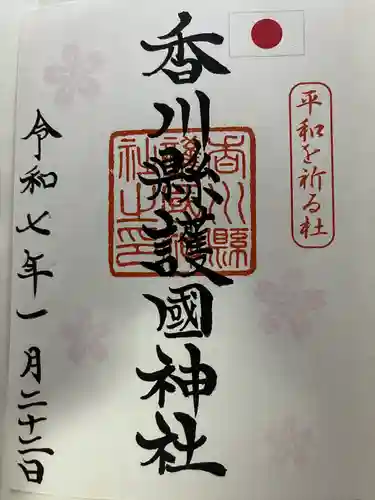 平和を祈る社
香川縣護國神社
香川縣護國神社之印
令和七年一月二十二日